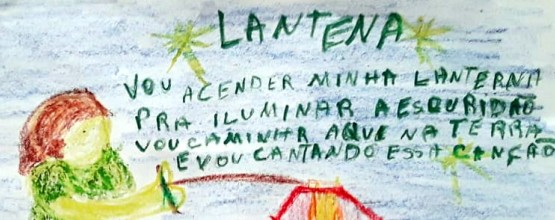 LANTENA
VOU ACENDER MINHA LANTERNA
PRA ILUMINAR A ESCURIDÃO
VOU CAMINHAR AQUE NA TERRA
E VOU CANTANDO ESSA CANÇÃO